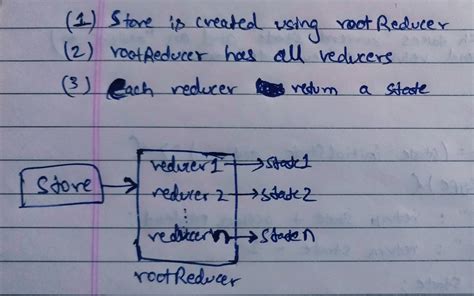 (1) Store is created using rootReducer
(2) rootReducer has all reducers
(3) Each reducer return a state
Store
reducer 1 → State1
reducer 2 → State2
⋮
reducer n → State n
rootReducer